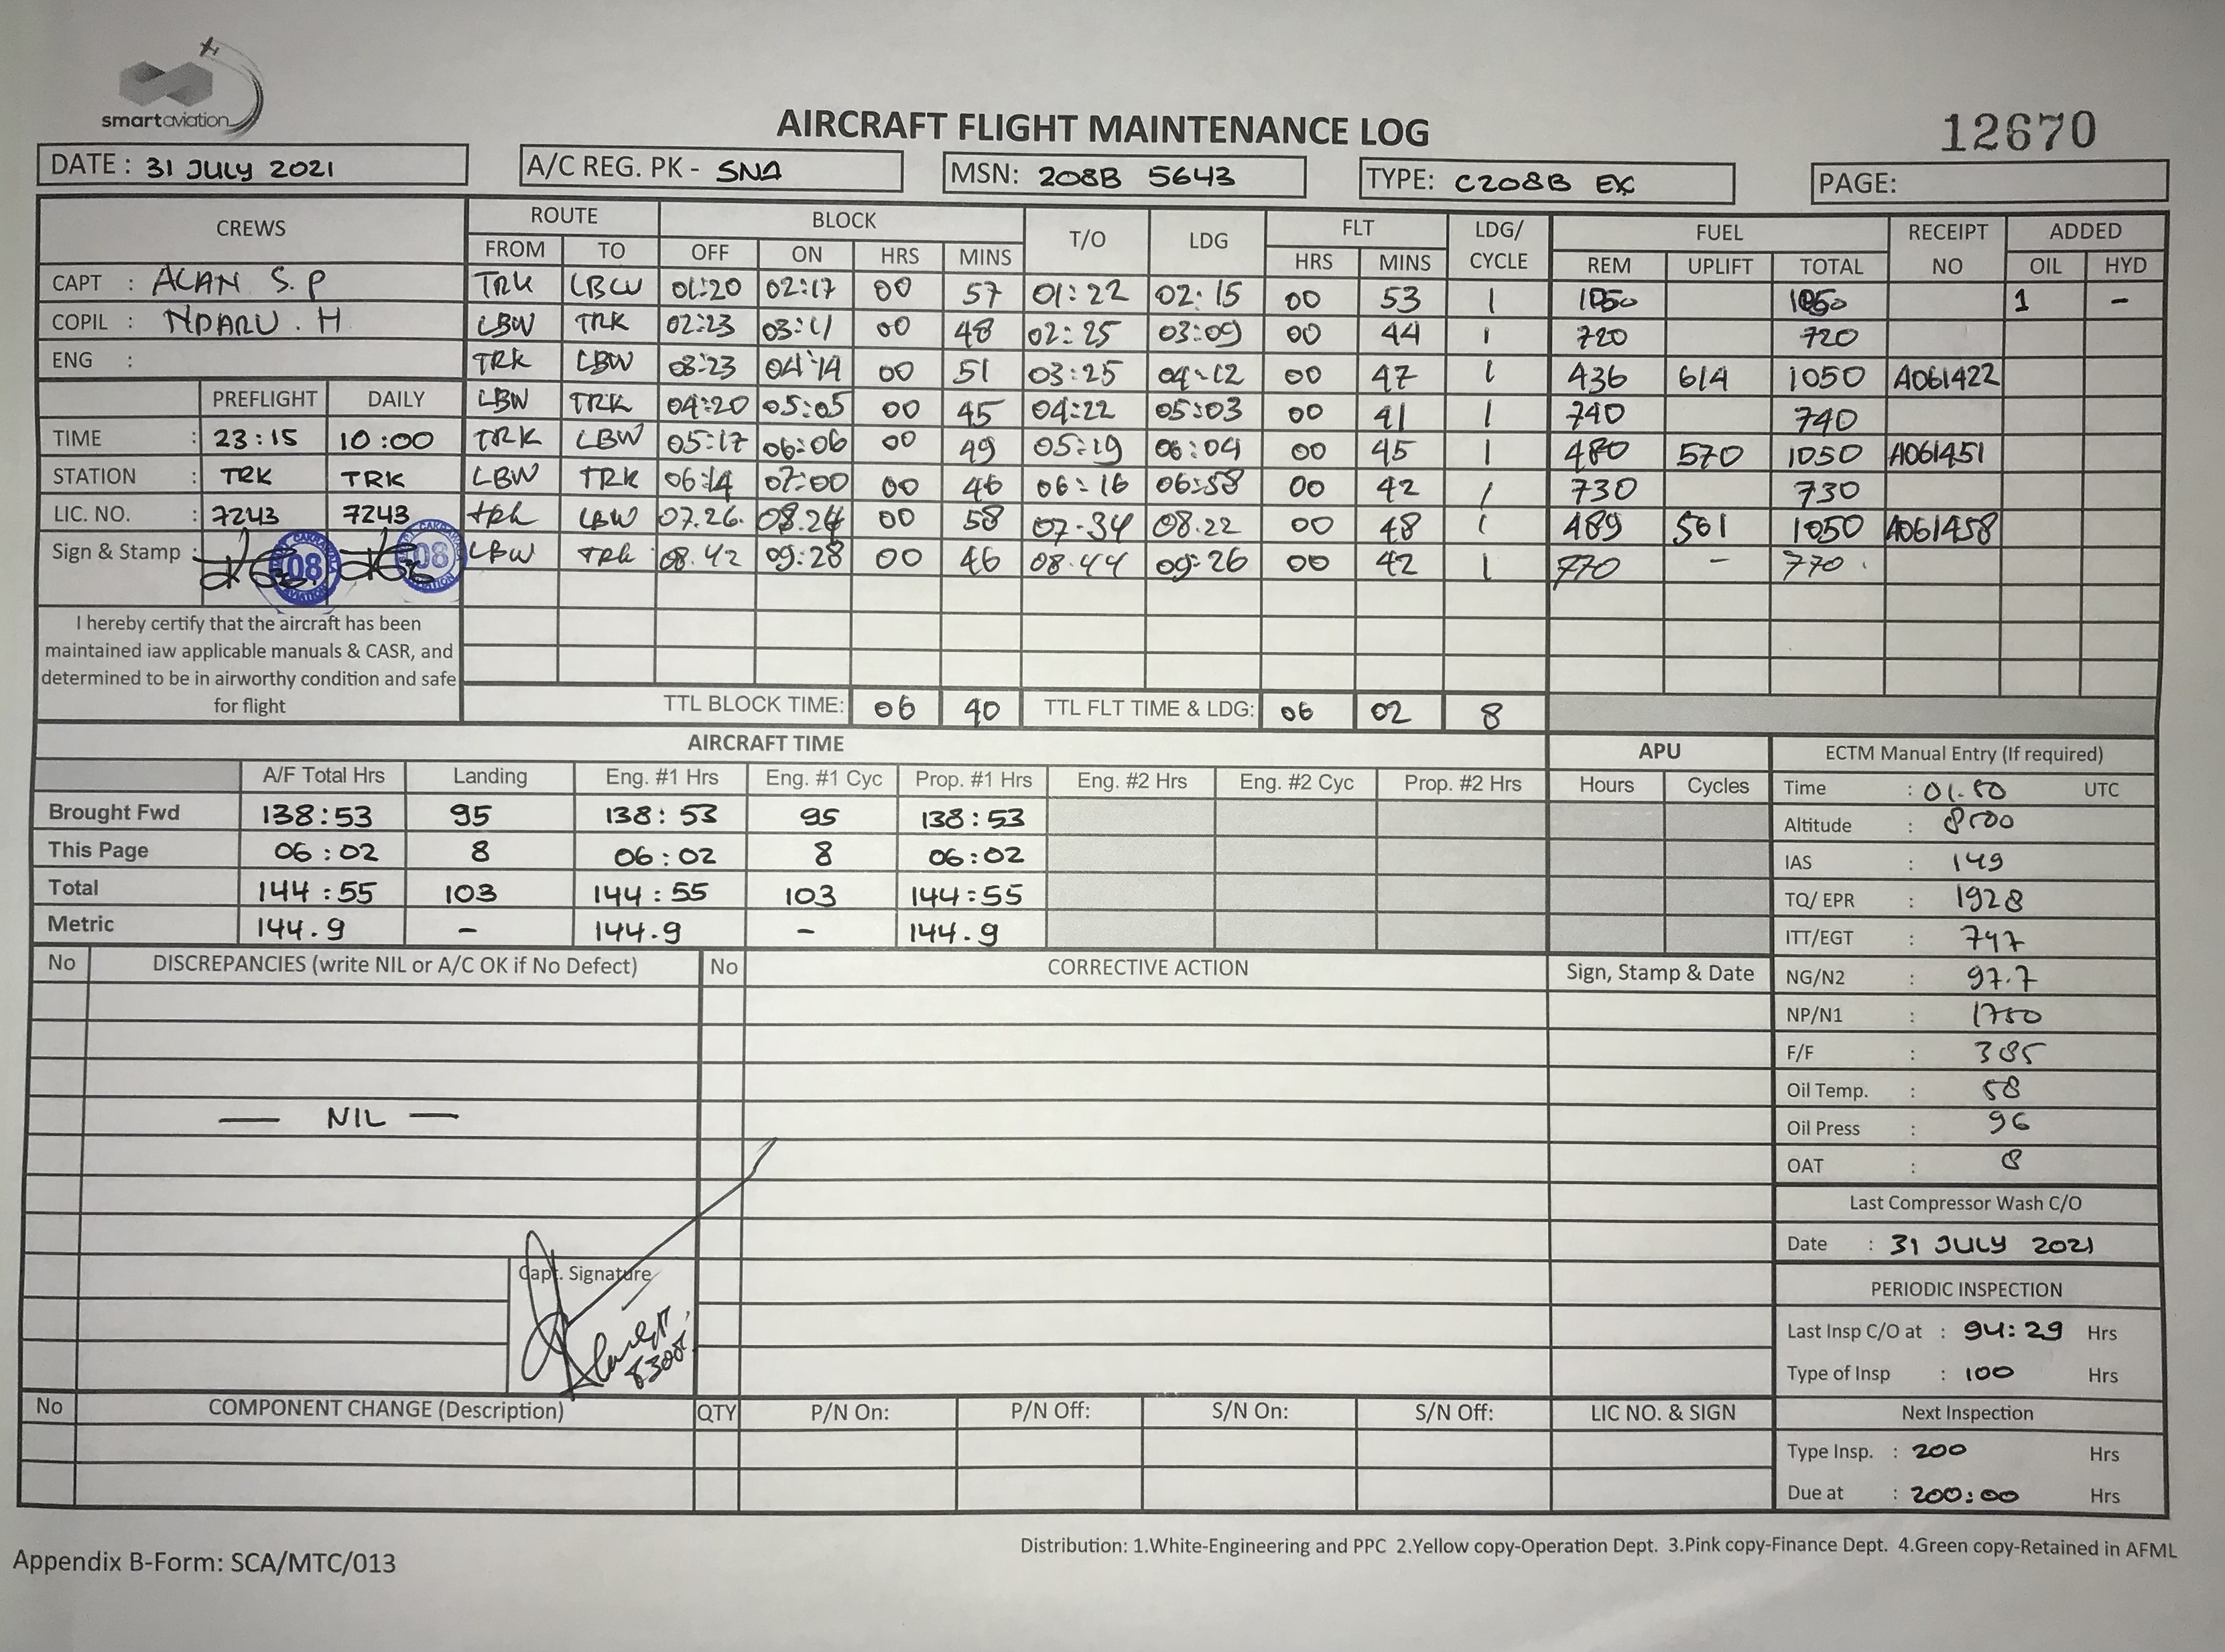 smartaviation
AIRCRAFT FLIGHT MAINTENANCE LOG
12670
DATE : 31 JULY 2021
A/C REG. PK - SNA
MSN: 208B 5643
TYPE: C208B EX
PAGE:
CREWS ROUTE BLOCK T/O LDG FLT LDG/ CYCLE FUEL RECEIPT NO ADDED
FROM TO OFF ON HRS MINS HRS MINS REM UPLIFT TOTAL OIL HYD
CAPT : ALAN S.P
COPIL : NDARU . H
ENG :
TRK LBW 01:20 02:17 00 57 01:22 02:15 00 53 1 1050 1050 1 -
LBW TRK 02:23 03:11 00 48 02:25 03:09 00 44 1 720 720
TRK LBW 03:23 04:14 00 51 03:25 04:12 00 47 1 436 614 1050 A061422
LBW TRK 04:20 05:05 00 45 04:22 05:03 00 41 1 740 740
TRK LBW 05:17 06:06 00 49 05:19 06:04 00 45 1 480 570 1050 A061451
LBW TRK 06:14 07:00 00 46 06:16 06:58 00 42 1 730 730
TRK LBW 07.26. 08.24 00 58 07.34 08.22 00 48 1 489 561 1050 A061458
LBW TRK 08.42 09:28 00 46 08.44 09:26 00 42 1 770 - 770
PREFLIGHT DAILY
TIME : 23:15 10:00
STATION : TRK TRK
LIC. NO. : 7243 7243
Sign & Stamp : 08 08
I hereby certify that the aircraft has been
maintained iaw applicable manuals & CASR, and
determined to be in airworthy condition and safe
for flight
TTL BLOCK TIME: 06 40 TTL FLT TIME & LDG: 06 02 8
AIRCRAFT TIME
A/F Total Hrs Landing Eng. #1 Hrs Eng. #1 Cyc Prop. #1 Hrs Eng. #2 Hrs Eng. #2 Cyc Prop. #2 Hrs
Brought Fwd 138:53 95 138:53 95 138:53
This Page 06:02 8 06:02 8 06:02
Total 144:55 103 144:55 103 144:55
Metric 144.9 - 144.9 - 144.9
APU
Hours Cycles
ECTM Manual Entry (If required)
Time : 01.50 UTC
Altitude : 8500
IAS : 149
TQ/ EPR : 1928
ITT/EGT : 747
NG/N2 : 97.7
NP/N1 : 1750
F/F : 385
Oil Temp. : 58
Oil Press : 96
OAT : 8
Last Compressor Wash C/O
Date : 31 JULY 2021
PERIODIC INSPECTION
Last Insp C/O at : 94:29 Hrs
Type of Insp : 100 Hrs
Next Inspection
Type Insp. : 200 Hrs
Due at : 200:00 Hrs
No DISCREPANCIES (write NIL or A/C OK if No Defect) No CORRECTIVE ACTION Sign, Stamp & Date
— NIL —
Capt. Signature
No COMPONENT CHANGE (Description) QTY P/N On: P/N Off: S/N On: S/N Off: LIC NO. & SIGN
Distribution: 1.White-Engineering and PPC 2.Yellow copy-Operation Dept. 3.Pink copy-Finance Dept. 4.Green copy-Retained in AFML
Appendix B-Form: SCA/MTC/013